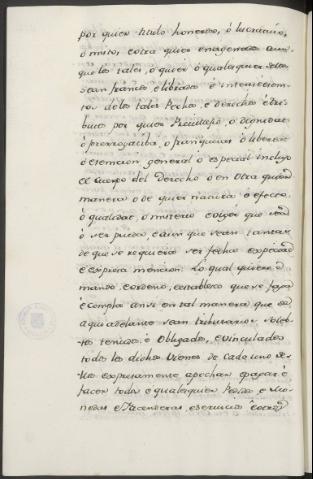 por quien titulo honeroso, ó lucratiuo,
ó misto, cotra quier enagenado aun-
que los tales, ó quier ó qualesquier dellos
sean francos, e libres, é interiecien-
tos delos tales Pechos, e derecho etri-
buto por quier Preuillejio, ó Dignidad
ó prerrogatiba, ó franquicia ó libertad
ó esemcion general ó especial incluso
el cuerpo del Derecho ó en otra quier
manera, ó de quier natura, ó efecto
ó qualidat, ó misterio
ó ser pueda, e aun que sean tantas
de que se requiera ser fecha especial
é espresa mencion. Lo qual quiero é
mando, é ordeno, é establesco que se faga
é compla ansi en tal manera que
aqui adelante sean tributarios
tenidos, é Obligados, e vinculados
todos los dichos Vienes de cada uno de-
llos expresamente apechar é pagar é
facer todos e qualesquier Pechos, e Mo-
nedas e Facenderas, e seruicios